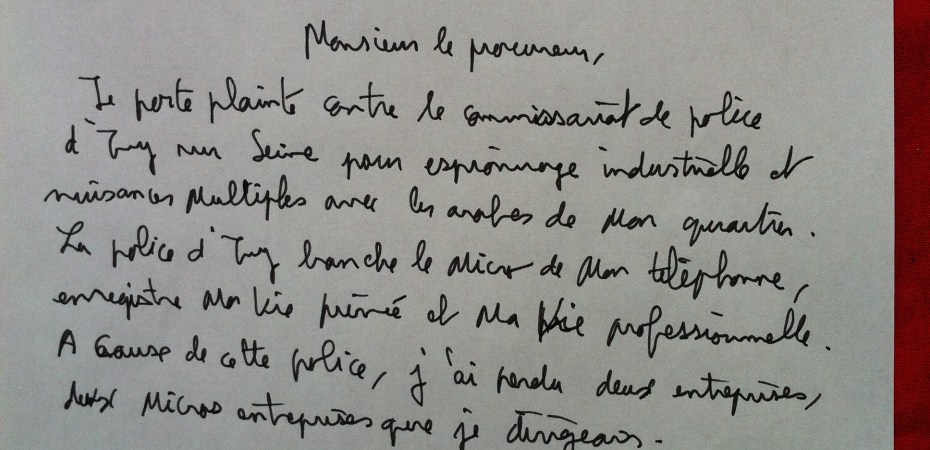 Monsieur le procureur,
Je porte plainte contre le commissariat de police
d'Ivry sur Seine pour espionnage industrielle et
nuisances multiples avec les arabes de mon quartier.
La police d'Ivry branche le micro de mon téléphonne,
enregistre ma vie privée et ma vie professionnelle.
A cause de cette police, j'ai perdu deux entreprises,
deux micros entreprises que je dirigeais.